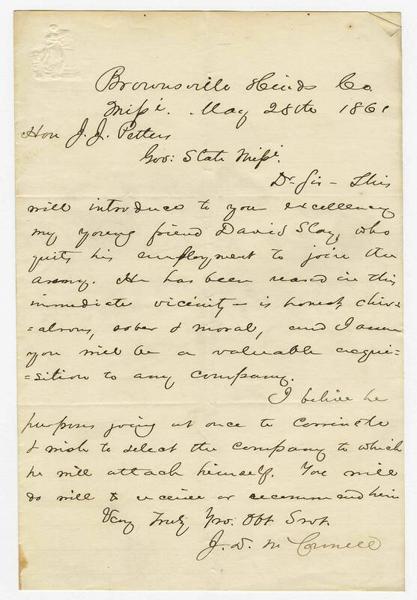 Brownsville Hinds Co.
Missi. May 28th 1861
Hon J. J. Pettus
Gov: State Missi.
Dr Sir - This
will introduce to you excellency
my young friend David Slay, who
quits his employment to join the
army. He has been reared in this
immediate vicinity - is honest chiv=
=alrous, sober & moral, and I assure
you will be a valuable acqui=
=sition to any company.
I believe he
purposes going at once to Corinth
& wish to select the company to which
he will attach himself. You will
do well to receive or recommend him
Very Truly Yro. Obt Svt.
J. D. McConnell